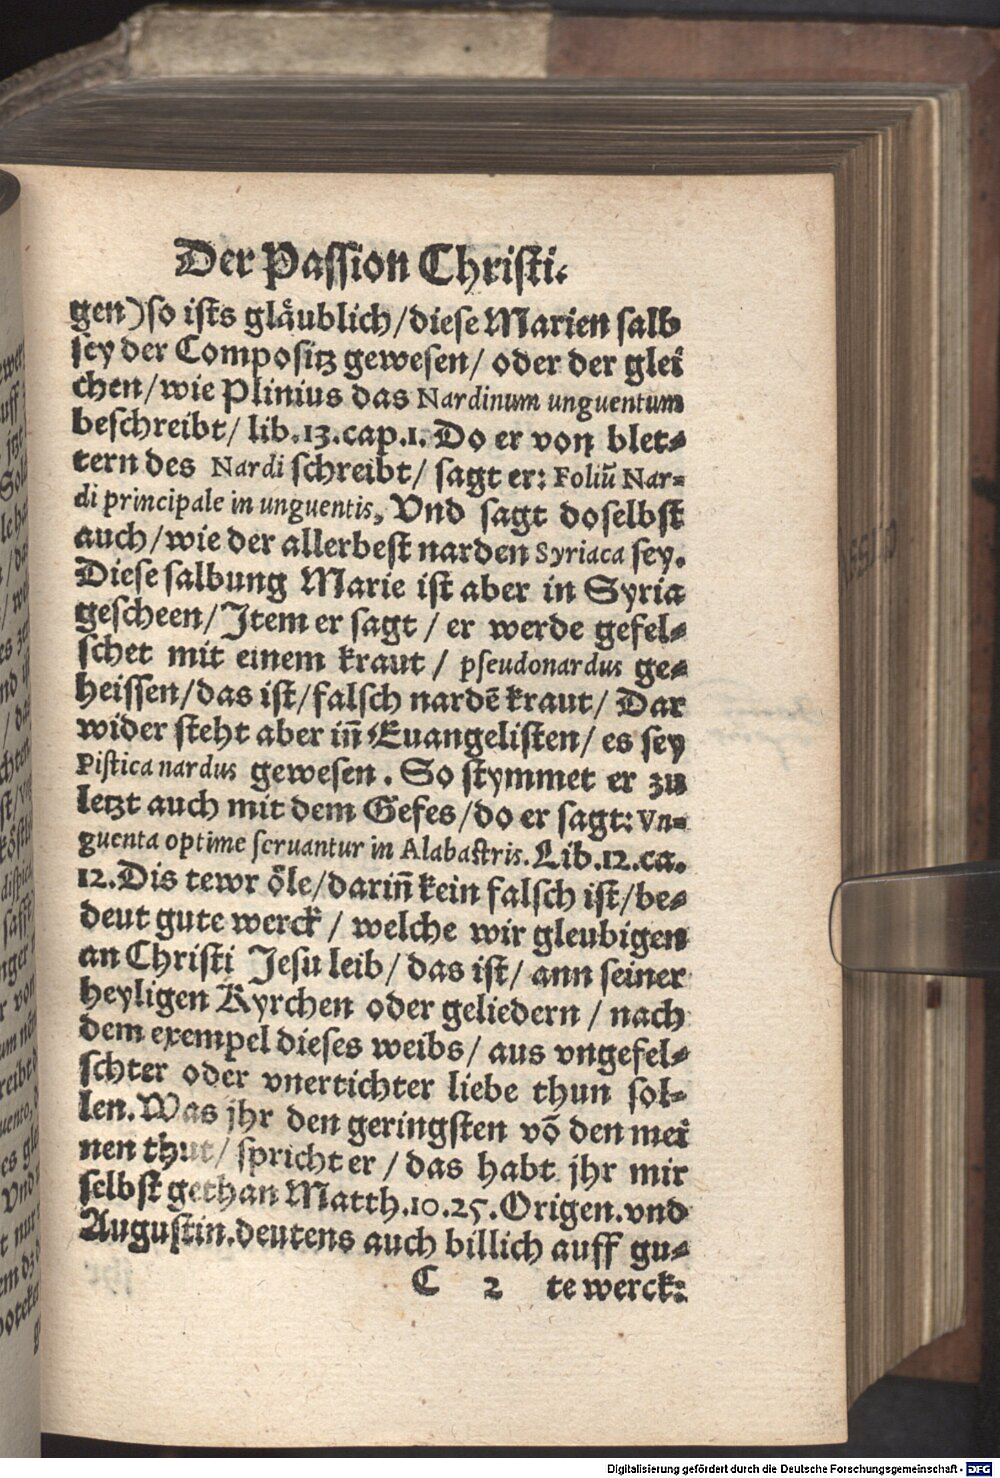 Der Passion Christi.
gen) so ists gläublich/diese Marien salb
sey der Compositz gewesen/ oder der glei
chen/wie Plinius das Nardinum unguentum
beschreibt/ lib.13.cap.1. Do er von blet-
tern des Nardi schreibt/ sagt er: Foliū Nar-
di principale in unguentis, Vnd sagt doselbst
auch/wie der allerbest narden Syriaca sey.
Diese salbung Marie ist aber in Syria
gescheen/ Item er sagt / er werde gefel-
schet mit einem kraut / pseudonardus ge-
heissen/das ist/falsch nardē kraut/ Dar
wider steht aber iñ Euangelisten/ es sey
Pistica nardus gewesen. So stymmet er zu
letzt auch mit dem Gefes/do er sagt: Vn-
guenta optime seruantur in Alabastris. Lib.12.ca.
12. Dis tewr öle/dariñ kein falsch ist/be-
deut gute werck / welche wir gleubigen
an Christi Jesu leib/ das ist/ ann seiner
heyligen Kyrchen oder geliedern / nach
dem exempel dieses weibs/ aus vngefel-
schter oder vnertichter liebe thun sol-
len. Was jhr den geringsten vō den mei
nen thut/ spricht er / das habt jhr mir
selbst gethan Matth.10.25. Origen.vnd
Augustin.deutens auch billich auff gu-
C 2 te werck:
Digitalisierung gefördert durch die Deutsche Forschungsgemeinschaft - DFG